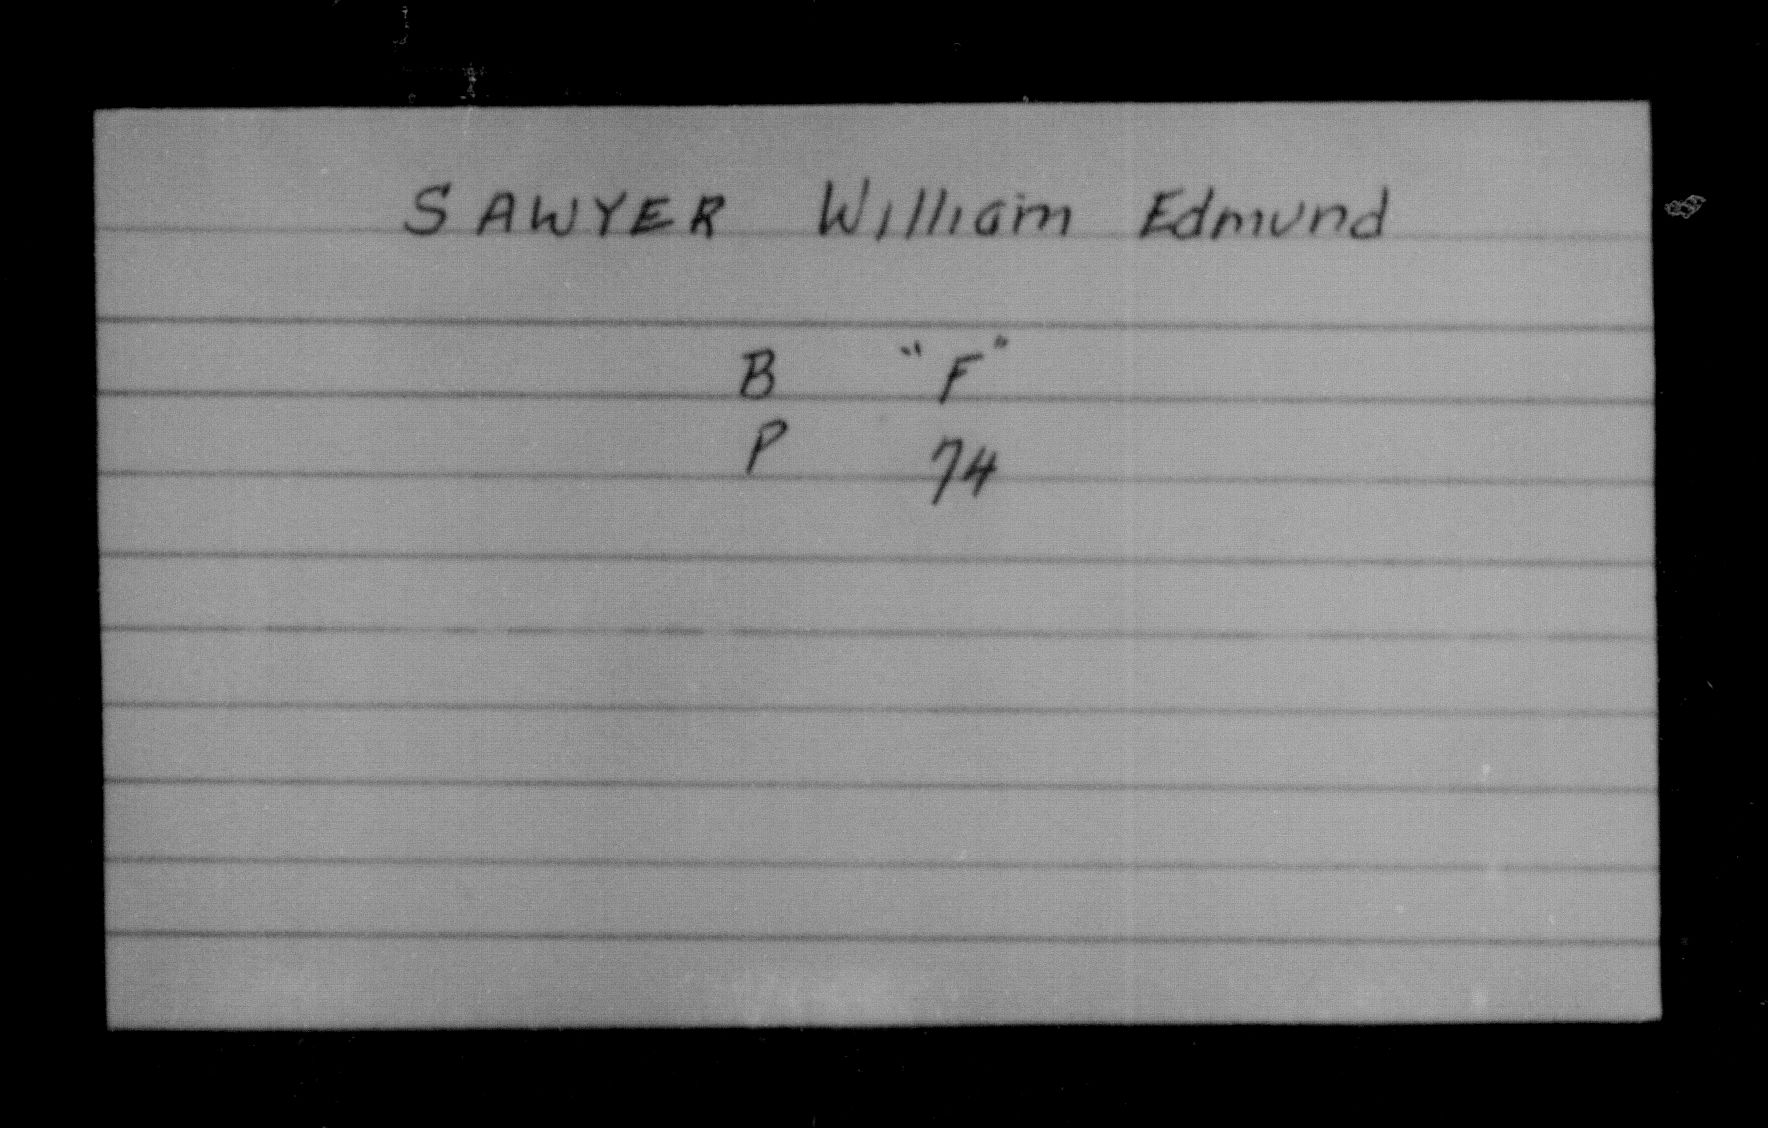 SAWYER William Edmund
B "F"
P 74